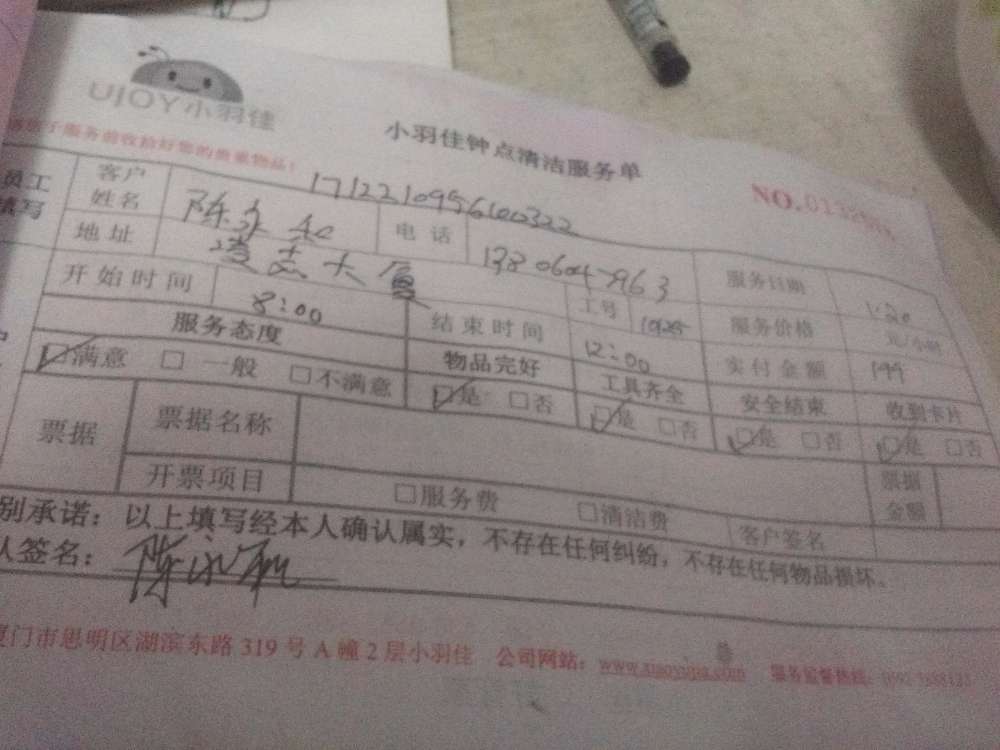 UJOY小羽佳
小羽佳钟点清洁服务单
服务前收拾好您的贵重物品!
NO.
1712210956100322
员工 客户姓名 陈 电话 服务日期 1.20
填写 地址 大厦 工号 服务价格 元/小时
开始时间 8:00 结束时间 12:00 实付金额 199
服务态度 物品完好 工具齐全 安全结束 收到卡片
☑满意 □一般 □不满意 ☑是 □否 ☑是 □否 ☑是 □否 ☑是 □否
票据 票据名称 票据金额
开票项目 □服务费 □清洁费 客户签名
别承诺：以上填写经本人确认属实，不存在任何纠纷，不存在任何物品损坏。
人签名： 陈
厦门市思明区湖滨东路319号A幢2层小羽佳 公司网站：www.xiaoyujia.com 服务监督热线：